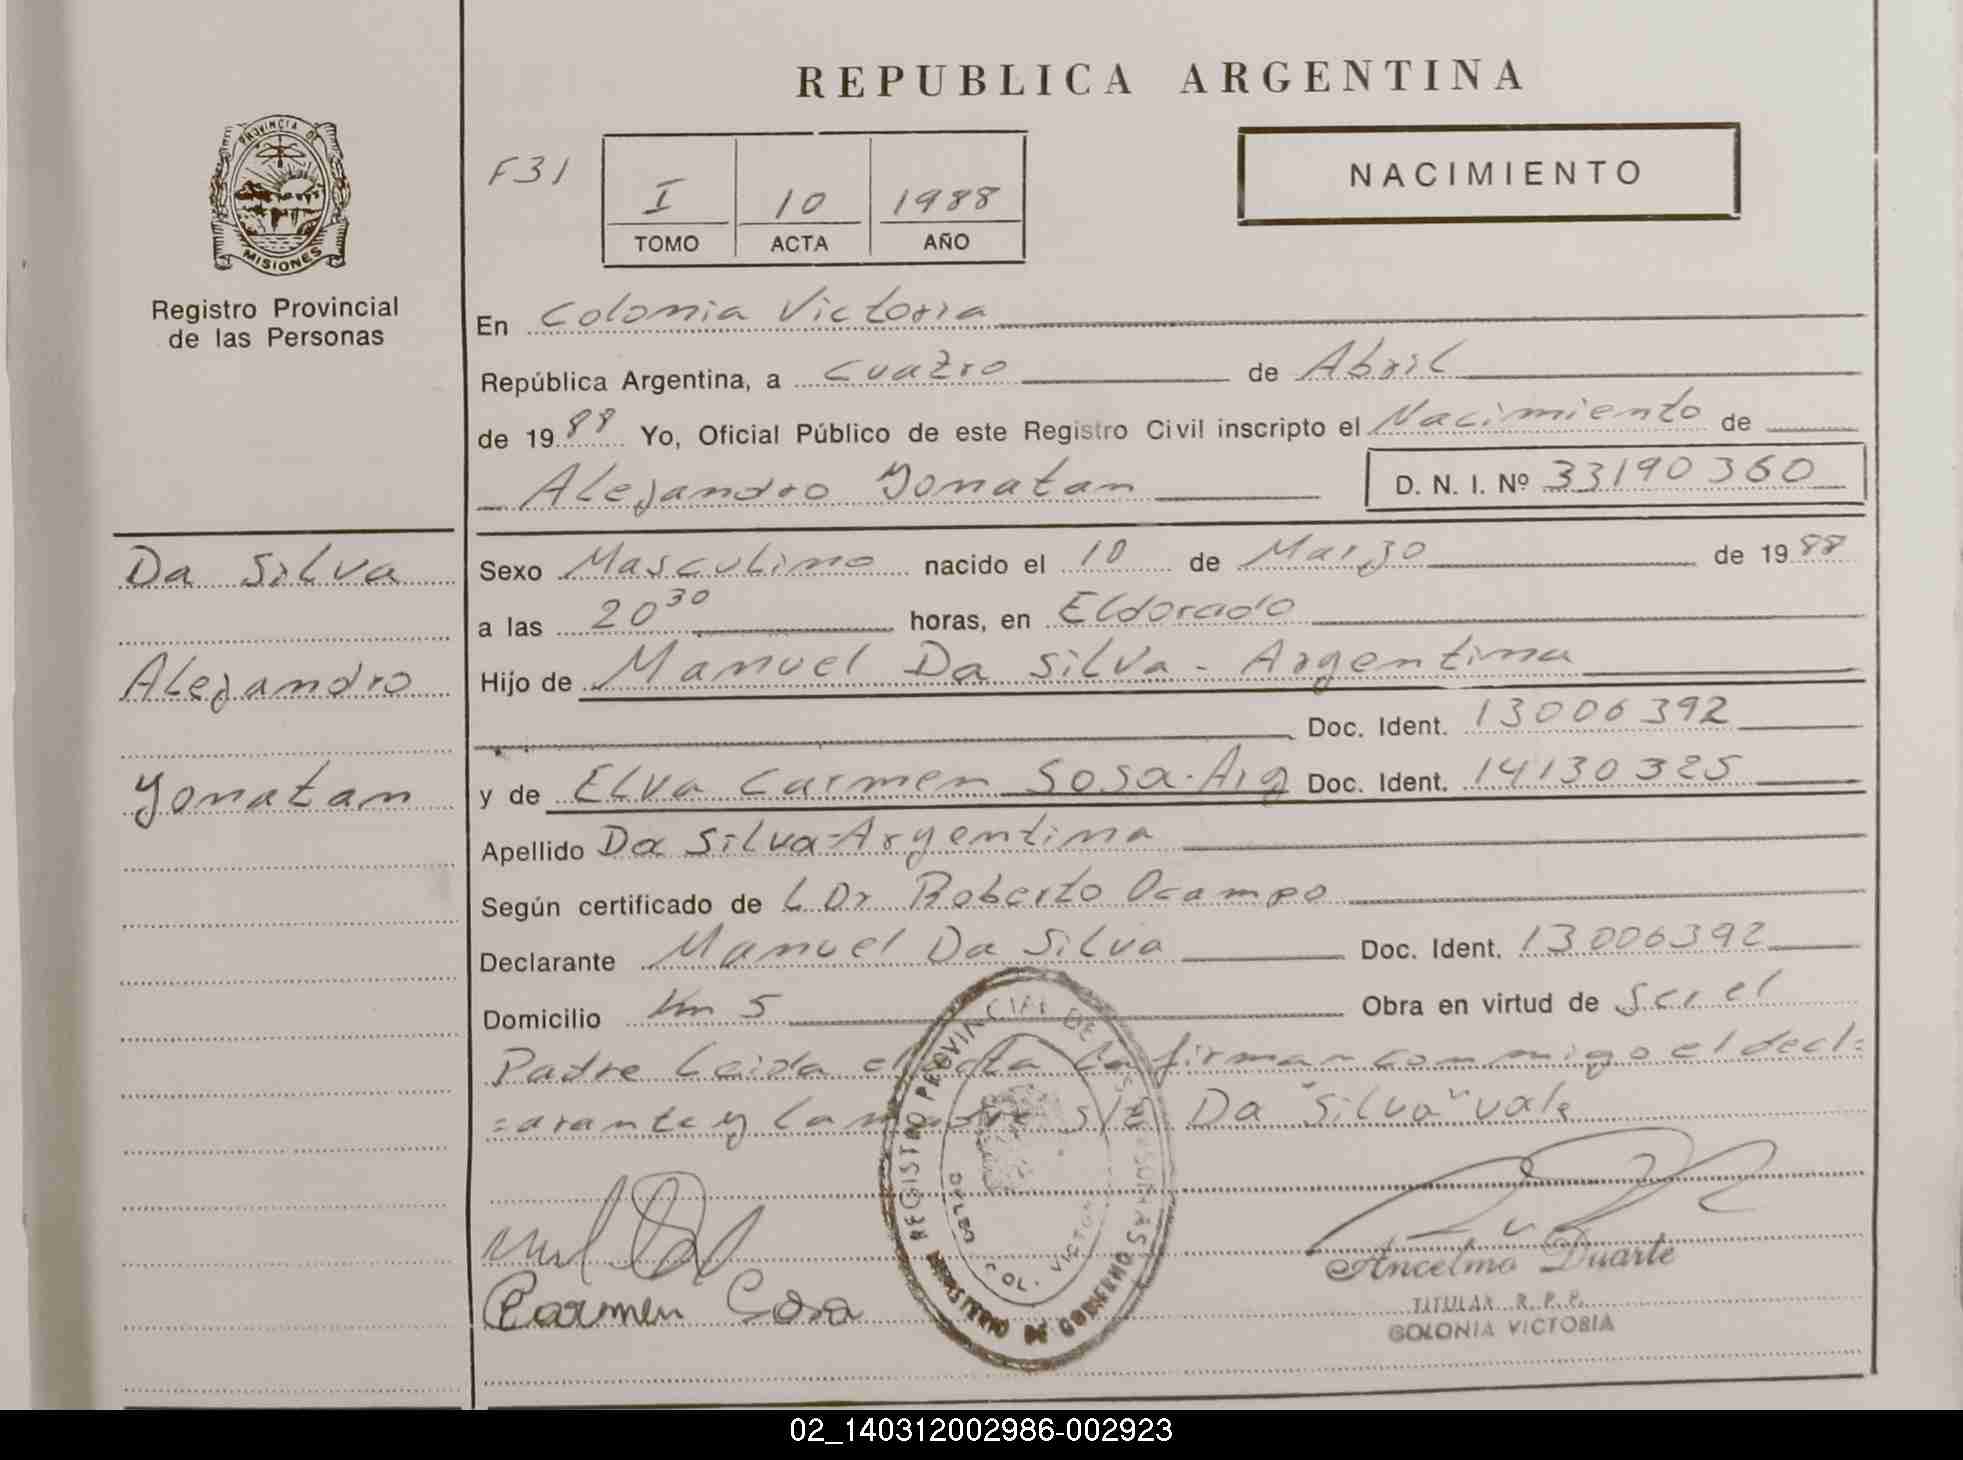 REPUBLICA ARGENTINA
PROVINCIA DE
MISIONES
Registro Provincial
de las Personas
F31
I 10 1988
TOMO ACTA AÑO
NACIMIENTO
En Colonia Victoria
República Argentina, a cuatro de Abril
de 1988 Yo, Oficial Público de este Registro Civil inscripto el Nacimiento de
Alejandro Yonatan D. N. I. Nº 33190360
Da Silva
Alejandro
Yonatan
Sexo Masculino nacido el 10 de Marzo de 1988
a las 20 30 horas, en Eldorado
Hijo de Manuel Da Silva - Argentina
Doc. Ident. 13006392
y de Elva Carmen Sosa - Arg Doc. Ident. 14130325
Apellido Da Silva - Argentina
Según certificado del Dr Roberto Ocampo
Declarante Manuel Da Silva Doc. Ident. 13006392
Domicilio Km 5 Obra en virtud de Ser el
Padre Leida el acta la firman conmigo el decl=
=arante y la madre s/E Da "Silva" vale
REGISTRO PROVINCIAL DE LAS PERSONAS
MINISTERIO DE GOBIERNO
COL. VICTORIA
Carmen Sosa
Ancelmo Duarte
TITULAR R. P. P.
COLONIA VICTORIA
02_140312002986-002923